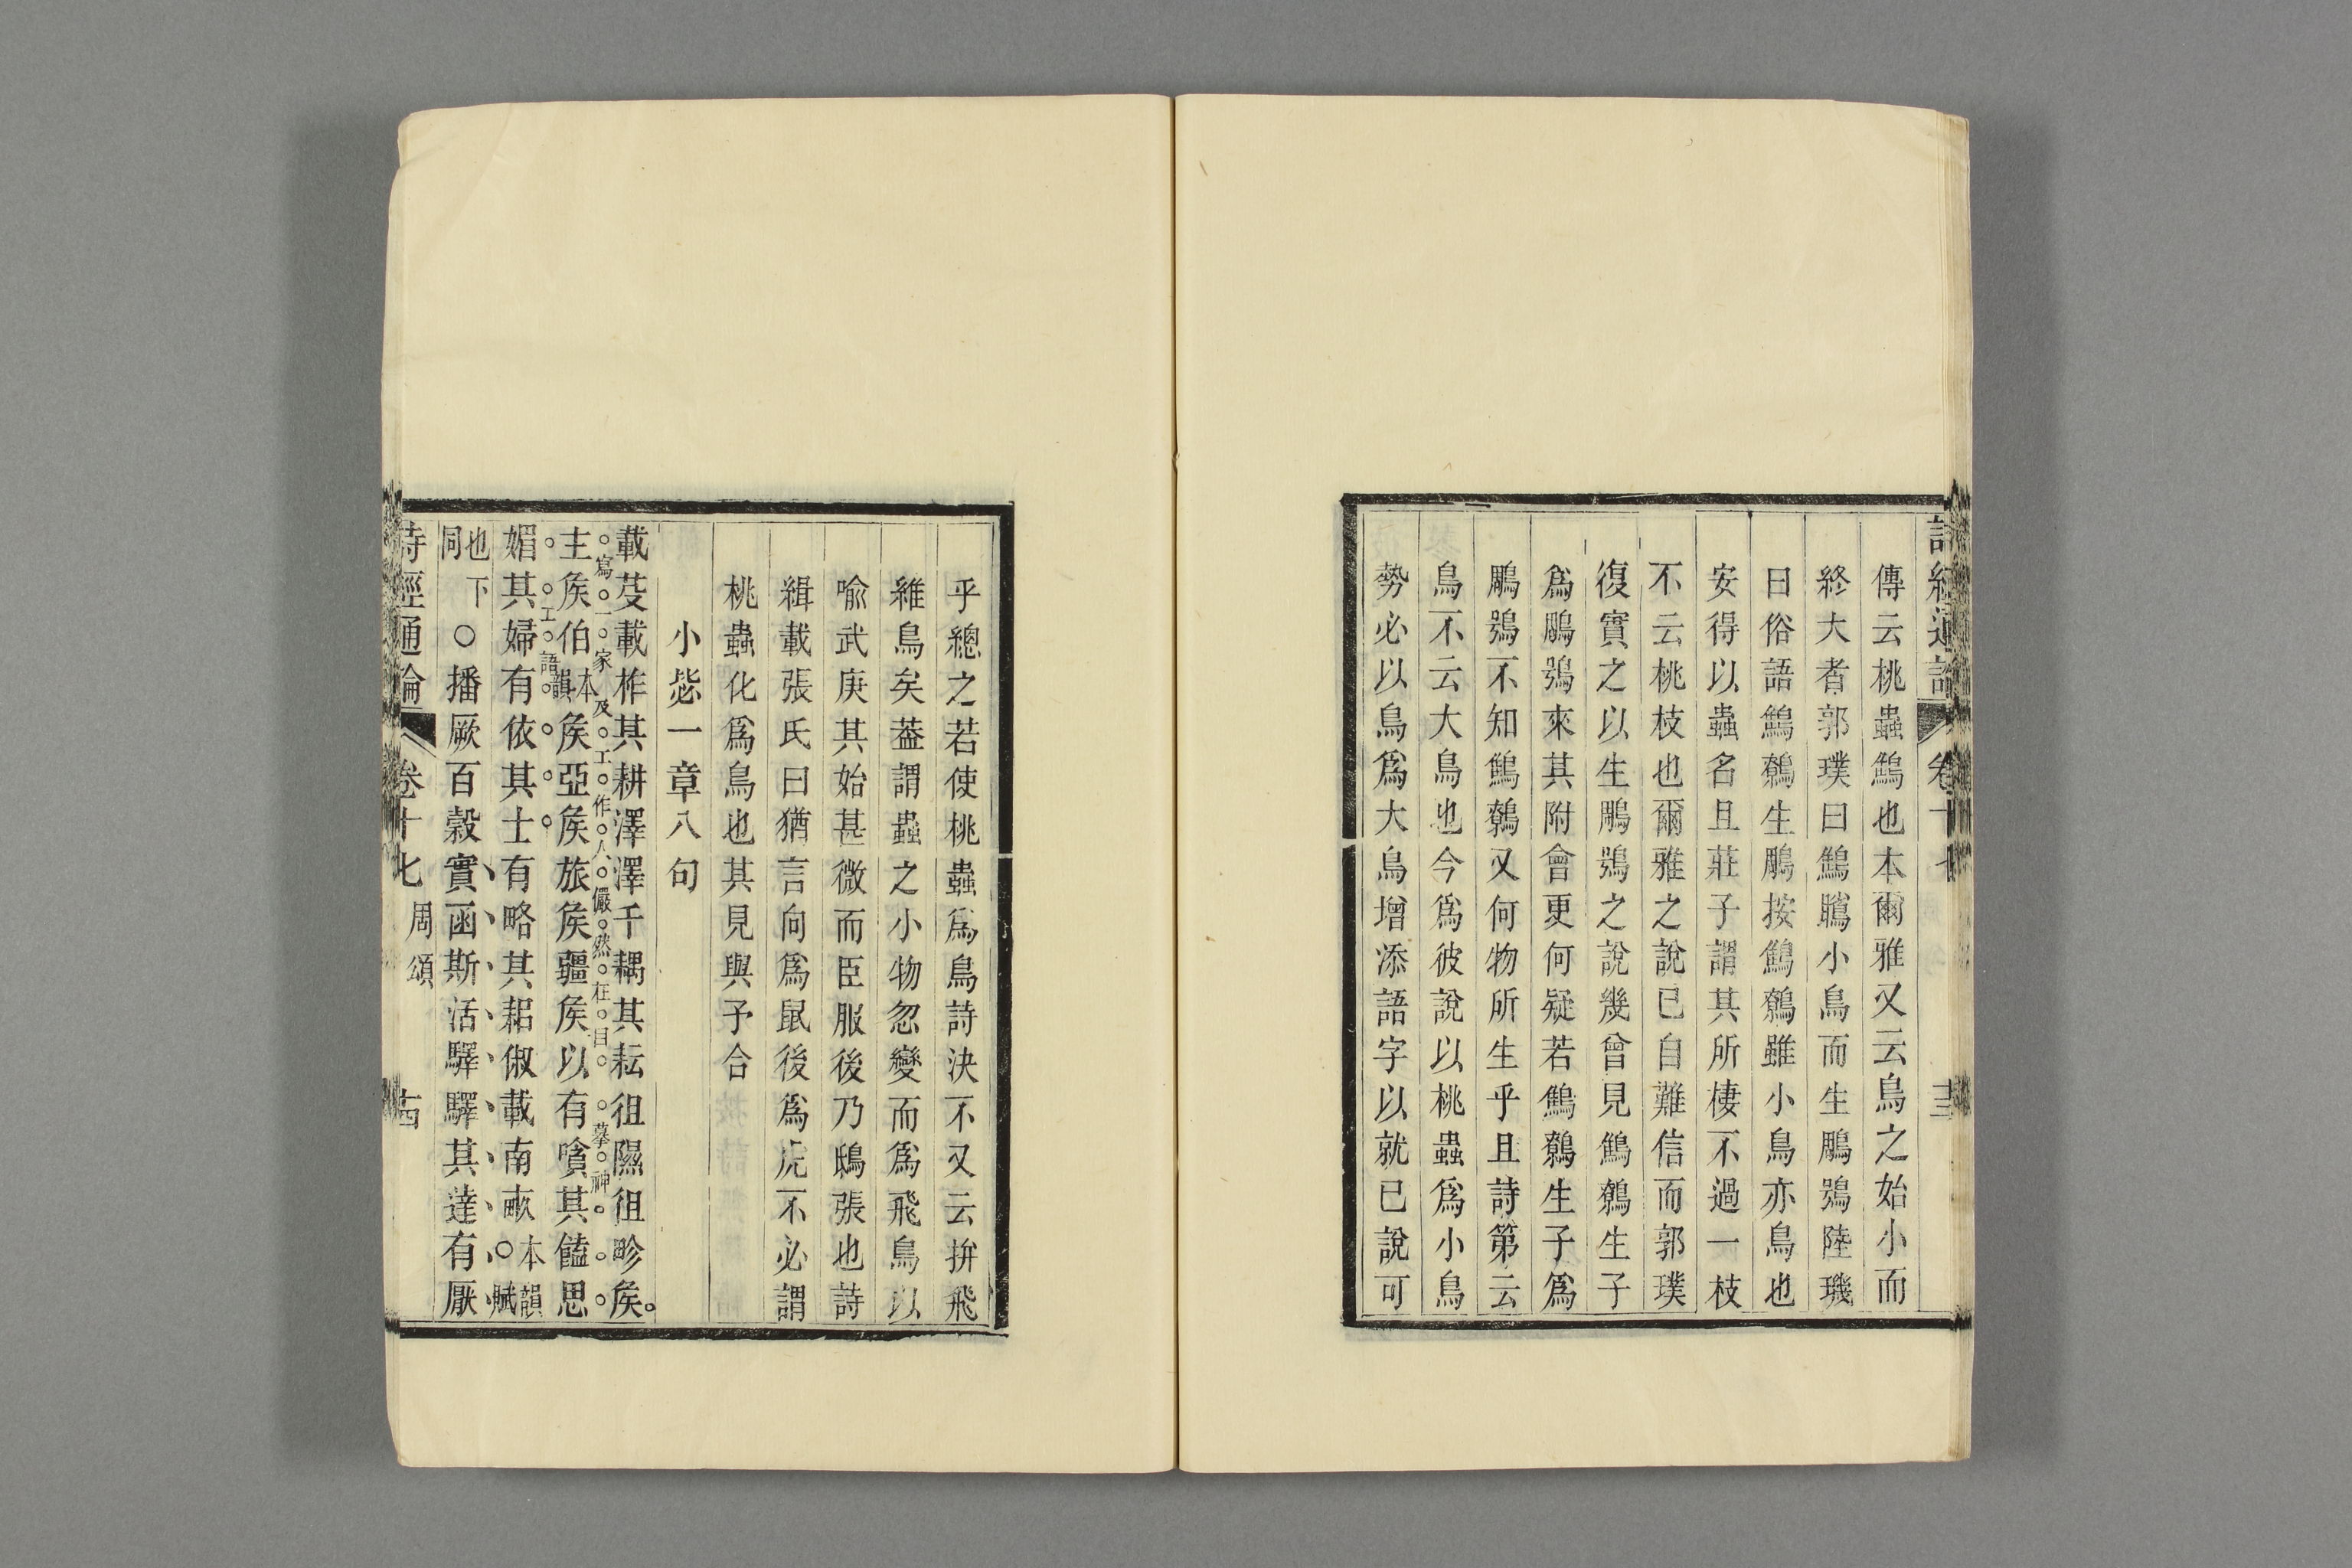 詩經通論 卷十七 十三
傳云桃蟲鷦也本爾雅又云鳥之始小而
終大者郭璞曰鷦鷯小鳥而生鵰鴞陸璣
曰俗語鷦鷯生鵰按鷦鷯雖小鳥亦鳥也
安得以蟲名且莊子謂其所棲不過一枝
不云桃枝也爾雅之說已自難信而郭璞
復實之以生鵰鴞之說幾曾見鷦鷯生子
爲鵰鴞來其附會更何疑若鷦鷯生子爲
鵰鴞不知鷦鷯又何物所生乎且詩第云
鳥不云大鳥也今爲彼說以桃蟲爲小鳥
勢必以鳥爲大鳥增添語字以就已說可
乎總之若使桃蟲爲鳥詩決不又云拚飛
維鳥矣葢謂蟲之小物忽變而爲飛鳥以
喻武庚其始甚微而臣服後乃鴟張也詩
緝載張氏曰猶言向爲鼠後爲虎不必謂
桃蟲化爲鳥也其見與予合
小毖一章八句
載芟載柞其耕澤澤千耦其耘徂隰徂畛矦
寫一家及工作人儼然在目 摹神
主矦伯本韻矦亞矦旅矦疆矦以有嗿其饁思
工語
媚其婦有依其士有略其耜俶載南畝本韻○賦
也下同○播厥百穀實函斯活驛驛其達有厭
詩經通論 卷十七 周頌 十四